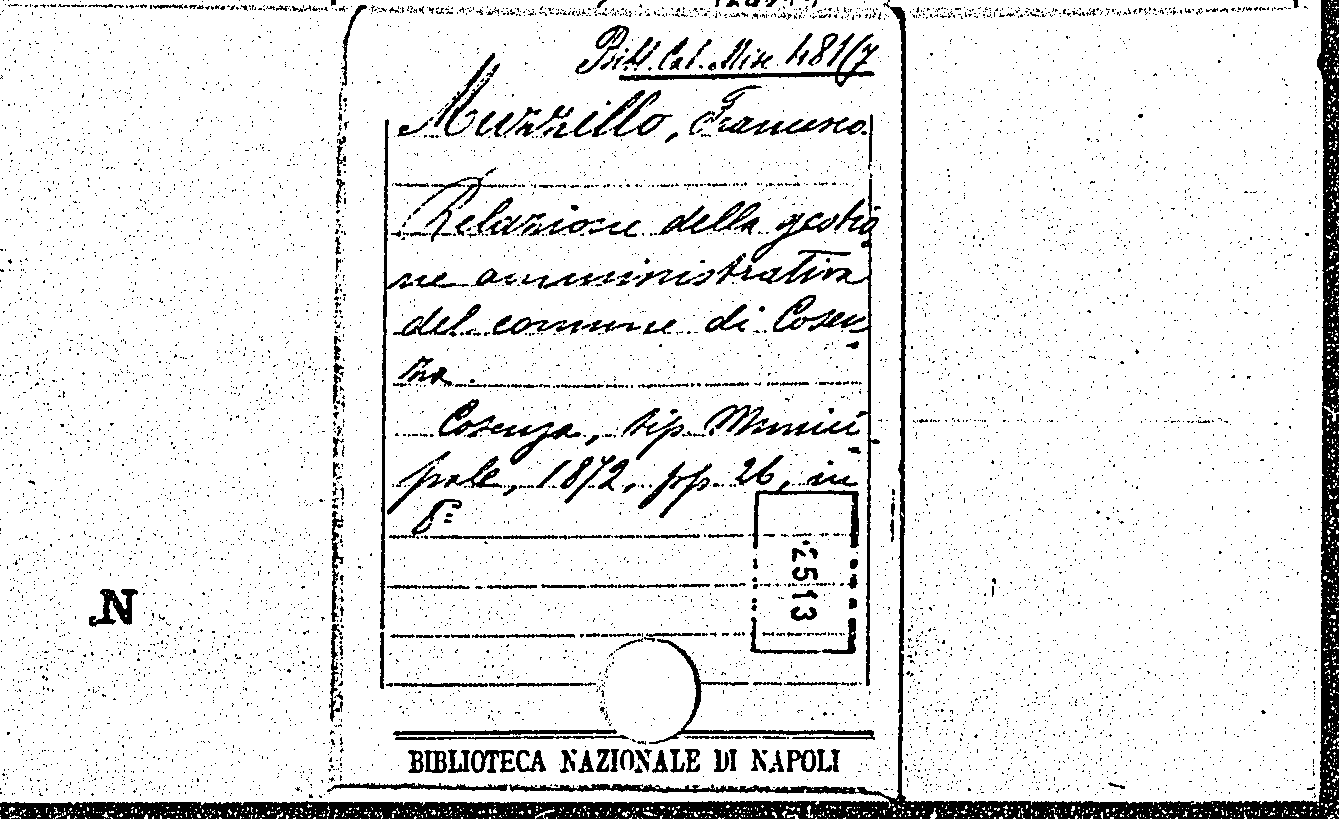 Bibl. Cal. Misc. 481(7
Muzzillo, Francesco
Relazione della gestio
ne amministrativa
del comune di Cosen
za.
Cosenza, tip. Munici
pale, 1872, pp. 26, in
8º
2513
N
BIBLIOTECA NAZIONALE DI NAPOLI